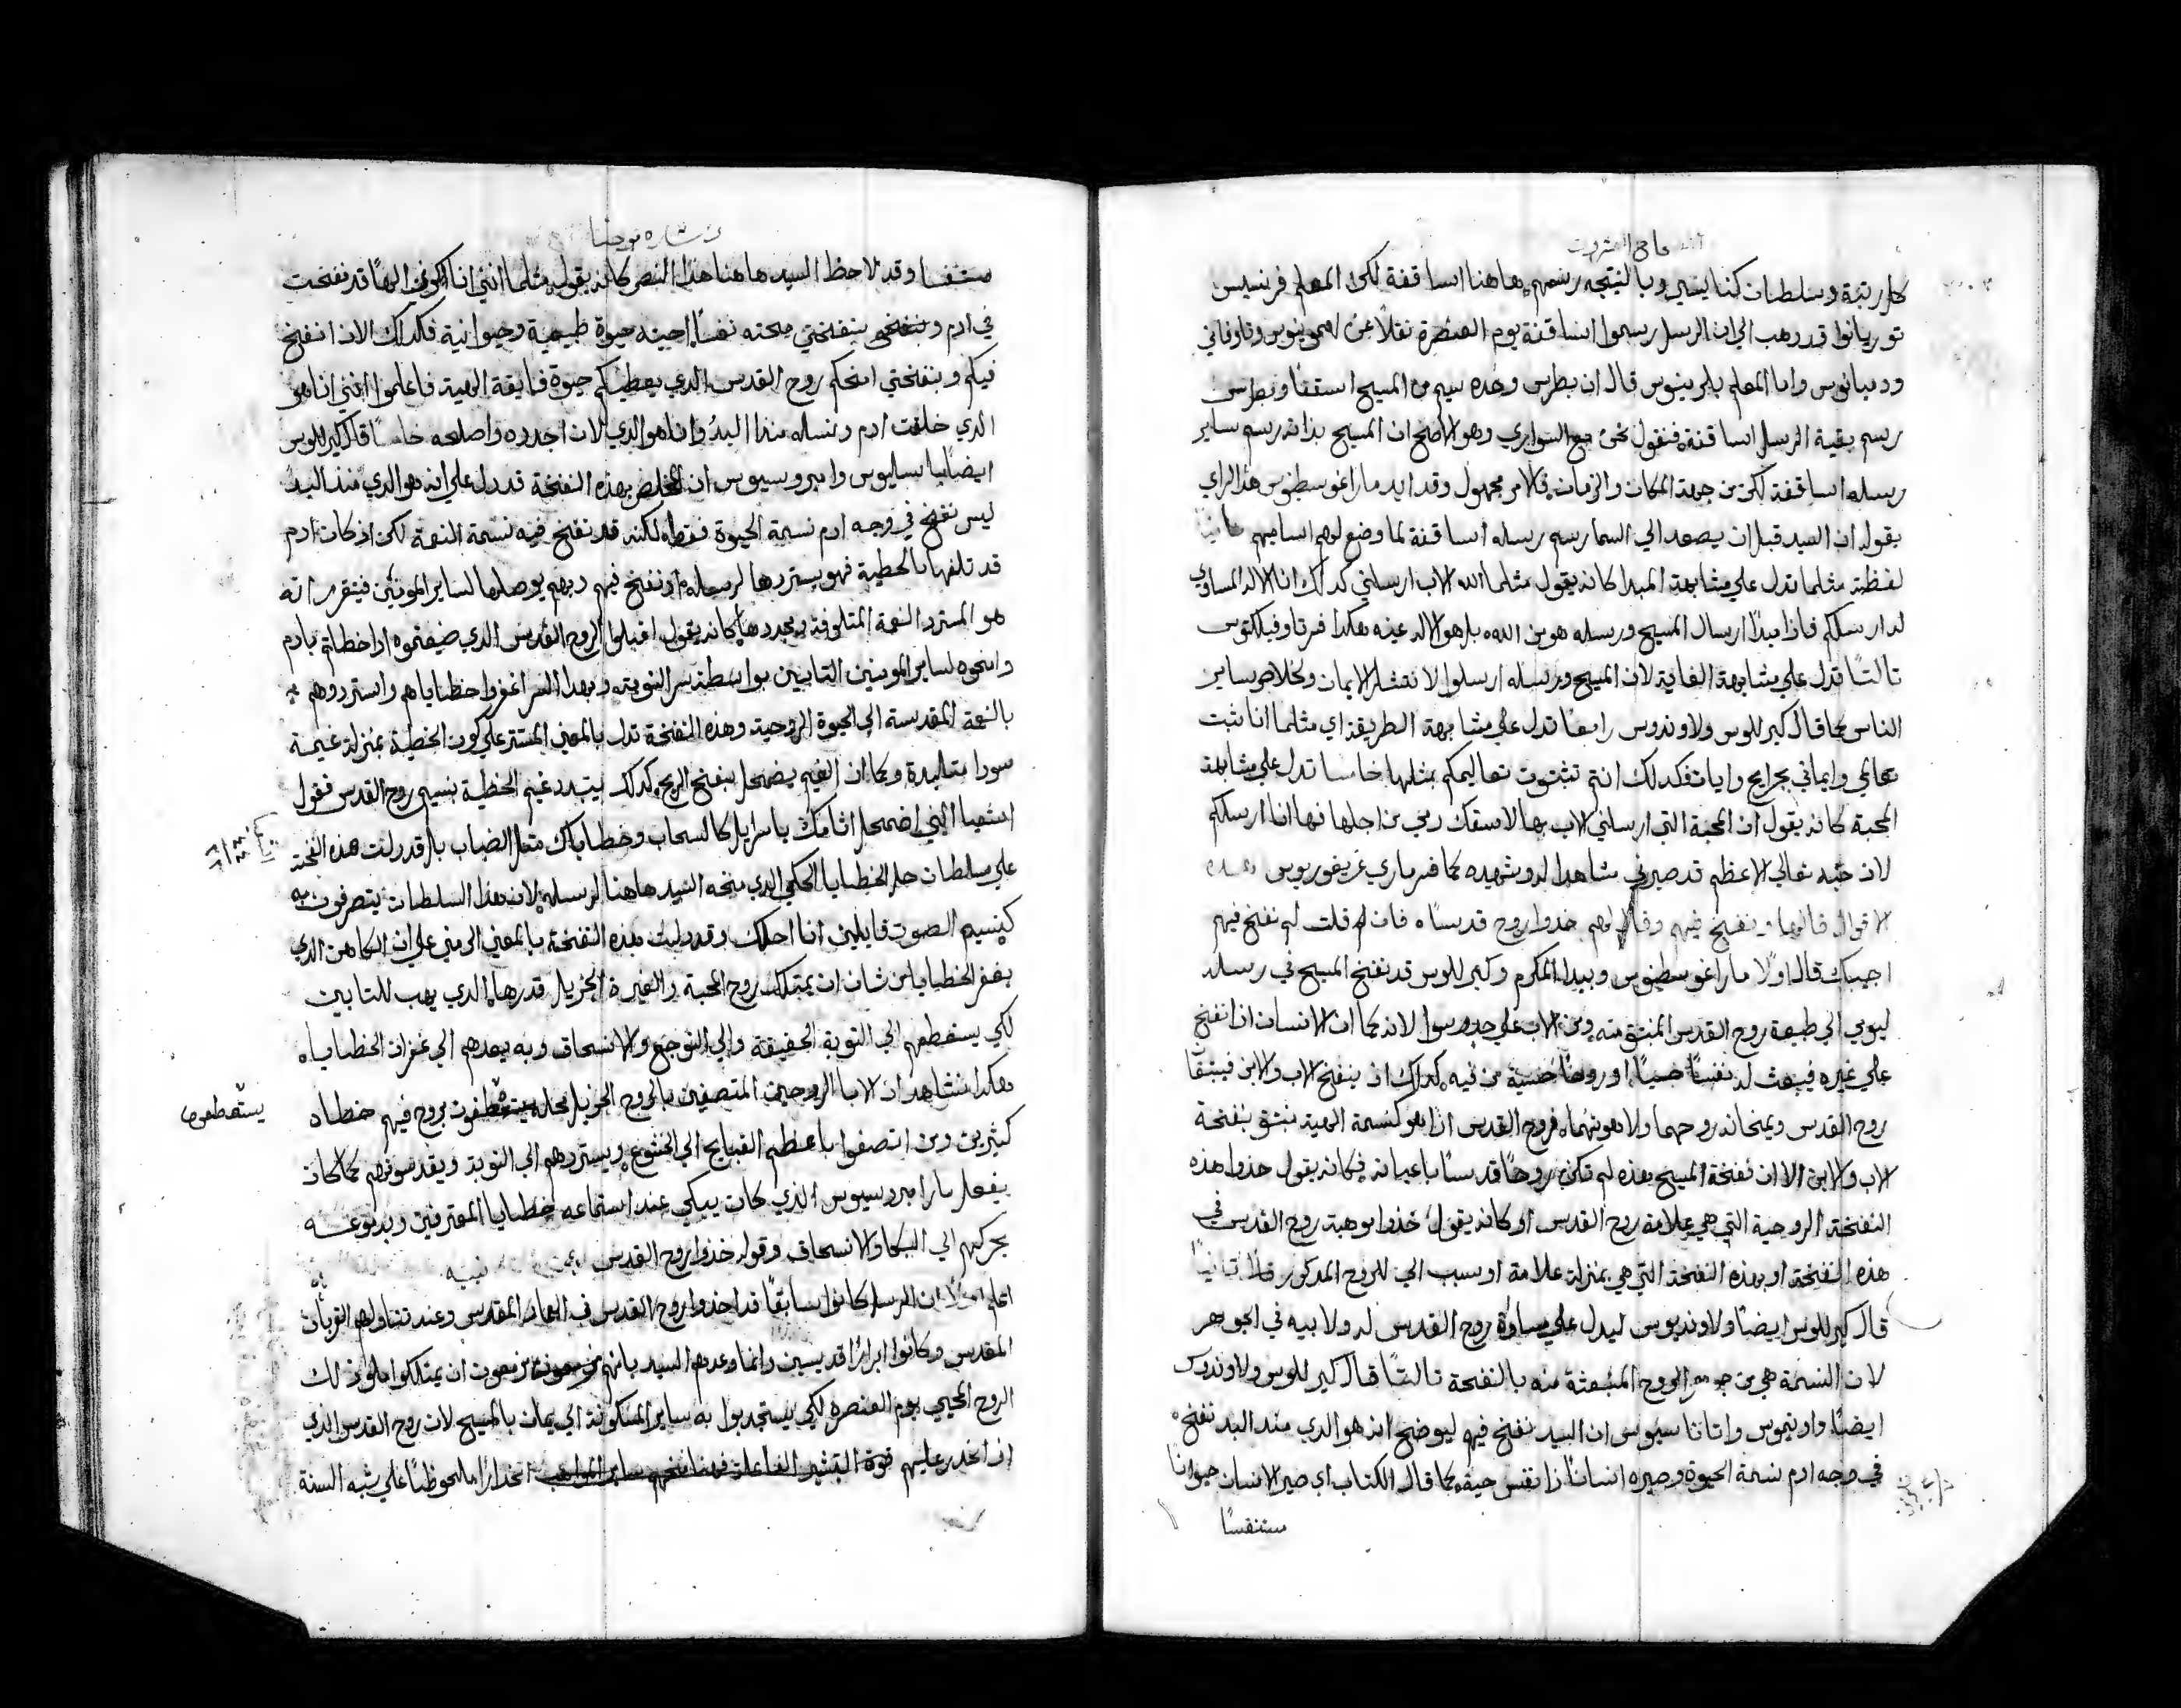 كل رتبة وسلطان كنايسي وبالنتيجه رسمهم هاهنا اساقفة لكن المعلم فرنسيس
توريانوا قد ذهب الي ان الرسل رسموا اساقفة يوم العنصرة نقلاً عن
ودميانوس واما المعلم بلرمينوس قال ان بطرس وحده سيم من المسيح اسقفا وبطرس
رسم بقية الرسل اساقفة فنقول نحن مع السواري وهو الاصح ان المسيح بذاته رسم ساير
رسله اساقفة لكن من جهة المكان والزمان فالامر مجهول وقد ايد مار اغوسطينوس هذا الراي
بقوله ان السيد قبل ان يصعد الي السما رسم رسله اساقفة لما وضع لهم اساميهم
لفظة مثلما تدل علي مشابهة المبدا كانه يقول مثلما الله الاب ارسلني كذلك انا الاله المساوي
له ارسلكم فاذا مبدا ارسال المسيح ورسله هو من الله بل هو الاله عينه هكذا فرتاوفيلكتوس
ثالثًا تدل علي مشابهة الغاية لان المسيح ورسله ارسلوا لانتشار الايمان ولخلاص ساير
الناس كما قال كيرللوس ولاونديوس رابعًا تدل علي مشابهة الطريقة اي مثلما انا ثبت
تعالمي وايماني بجرايح وايات فكذلك انتم تثبتون تعاليمكم بمثلها خامسا تدل علي مشابهة
المحبة كانه يقول ان المحبة التي ارسلني الاب بها لاسفك دمي من اجلها فبها انا ارسلكم
لان حبه تعالي الاعظم قد صيرني مشاهدا له وشهيده كما فسر ماري غريغوريوس
الاقوال قالها ونفخ فيهم وقال لهم خذوا روح قدسًا فان قلت لم نفخ فيهم
اجيبك قال اولًا مار اغوسطينوس وبيدا المكرم وكيرللوس قد نفخ المسيح في رسله
ليومي الي طبيعة روح القدس المنبثق منه ومن الاب علي حدٍ سوا لانه كما ان الانسان اذا نفخ
علي غيره فيبعث له نفسًا حسيًا او روحًا حسية من فيه كذلك اذ ينفخ الاب والابن فيبثقا
روح القدس ويمنحانه روحهما ولاهوتهما فروح القدس اذا هو كنسمة الهية تنبثق بنفخة
الاب والابن الا ان نفخة المسيح هذه لم تكن روحًا قدسًا باعيانه فكانه يقول خذوا هذه
النفخة الروحية التي هي علامة روح القدس او كانه يقول خذوا موهبة روح القدس في
هذه النفخة او بهذه النفخة التي هي بمنزلة علامة او سبب الي للروح المذكور ثانيًا
قال كيرللوس ايضًا ولاونديوس ليدل علي مساوة روح القدس له ولابيه في الجوهر
لان النسمة هي من جوهر الروح المنبعثة منه بالنفخة ثالثًا قال كيرللوس ولاونديوس
ايضًا واونيموس واثاناسيوس ان السيد نفخ فيهم ليوضح انه هو الذي منذ البد نفخ
في وجه ادم نسمة الحيوة وصيره انسانًا ذا نفس حية كما قال الكتاب اي صير الانسان حيوانا
متنفسًا
بشاره يوحنا
متنفسا وقد لاحظ السيد هاهنا هذا النص كانه يقول مثلما انني انا الهًا قد نفخت
في ادم وبنفختي منحته نفسًا احيته حيوة طبيعية وحيوانية فكذلك الان انفخ
فيكم وبنفختي امنحكم روح القدس الذي يعطيكم حيوة فايقة الهية فاعلموا انني انا هو
الذي خلقت ادم ونسله منذ البدُ وانا هو الذي الان اجدده واصلحه خامسًا قال كيرللوس
ايضًا باسيليوس وامبروسيوس ان المخلص بهذه النفخة قد دل علي انه هو الذي منذ البدُ
ليس نفخ في وجه ادم نسمة الحيوة فقط لكنه قد نفخ فيه نسمة النعمة لكن اذ كان ادم
قد تلفها بالخطية فهو يستردها لرسله اذ نفخ فيهم وبهم يوصلها لساير المومنين فيتقرر انه
هو المسترد النعمة المتلوفة ومجددها كانه يقول اقبلوا الروح القدس الذي ضيعتموه اذ اخطاتم بادم
وامنحوه لساير المومنين التايبين بواسطة سر التوبة وبهذا السر اغفروا خطاياهم واستردوهم
بالنعمة المقدسة الي الحيوة الروحية وهذه النفخة تدل بالمعني المستتر علي كون الخطية بمنزلة غيمة
سودا متلبدة وكما ان الغيم يضمحل بنفخ الريح كذلك يتبدد غيم الخطية بنسيم روح القدس فقول
اشعيا النبي اضمحل اثامك ياسرايل كالسحاب وخطاياك مثل الضباب بل قد دلت هذه النفخة
علي سلطان حل الخطايا الحكمي الذي منحه السيد هاهنا لرسله لان بهذا السلطان يتصرفون به
كنسيم الصوت قايلين انا احلك وقد دليت هذه النفخة بالمعني الرمني علي ان الكاهن الذي
يغفر الخطايا من شانه ان يمتلك روح المحبة والغيرة الجزيل قدرها الذي يهب للتايبين
لكي يستقطعهم الي التوبة الحقيقة والي التوجع والانسحاق وبه يعدهم الي غفران الخطايا
هكذا نشاهد ان الابا الروحيين المتصفين بالروح الجزيل بروح فيهم خطاه
يستعطفون
كثيرين ومن اتصفوا باعظم القبايح الي الخشوع ويستردهم الي التوبة ويقدسوهم كما كان
يفعل مار امبروسيوس الذي كان يبكي عند استماعه خطايا المعترفين وبدموعه
يحركهم الي البكا والانسحاق وقوله خذوا روح القدس
اعلم اولًا ان الرسل كانوا سابقًا قد اخذوا روح القدس في العماد المقدس وعند تناولهم القربان
المقدس وكانوا ابرارًا قديسين وانما وعدهم السيد بانهم مزمعون ان يمتلكوا ملو ذلك
الروح المحيي يوم العنصره لكي يستجدبوا به ساير المسكونة الي يمان بالمسيح لان روح القدس الذي
اذ انحدر عليهم قوة التبشير الفاعلة انحدارًا ملحوظًا علي شبه السنة